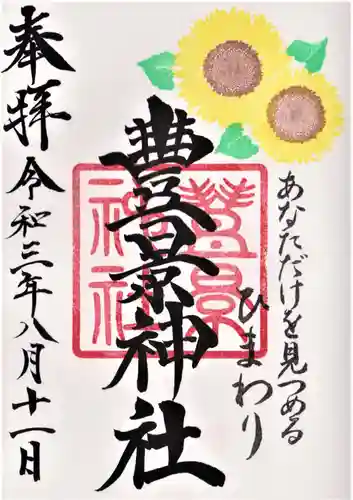 あなただけを見つめる
ひまわり
豊景神社
豊景神社
奉拝
令和三年八月十一日